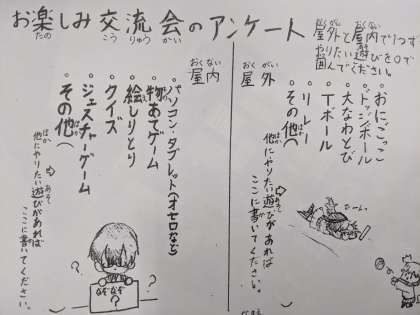 お楽しみ交流会のアンケート
屋外と屋内で1つず
やりたい遊びを○で
囲んでください。
屋外
・おにごっこ
・ドッジボール
・大なわとび
・Tボール
・リレー
・その他(
⇨他にやりたい遊びがあれば
ここに書いてください。
)
屋内
・パソコン・タブレット(オセロなど)
・物あてゲーム
・絵しりとり
・クイズ
・ジェスチャーゲーム
・その他(
⇨他にやりたい遊びがあれば
ここに書いてください。
)
なぞなぞ
?
?
?